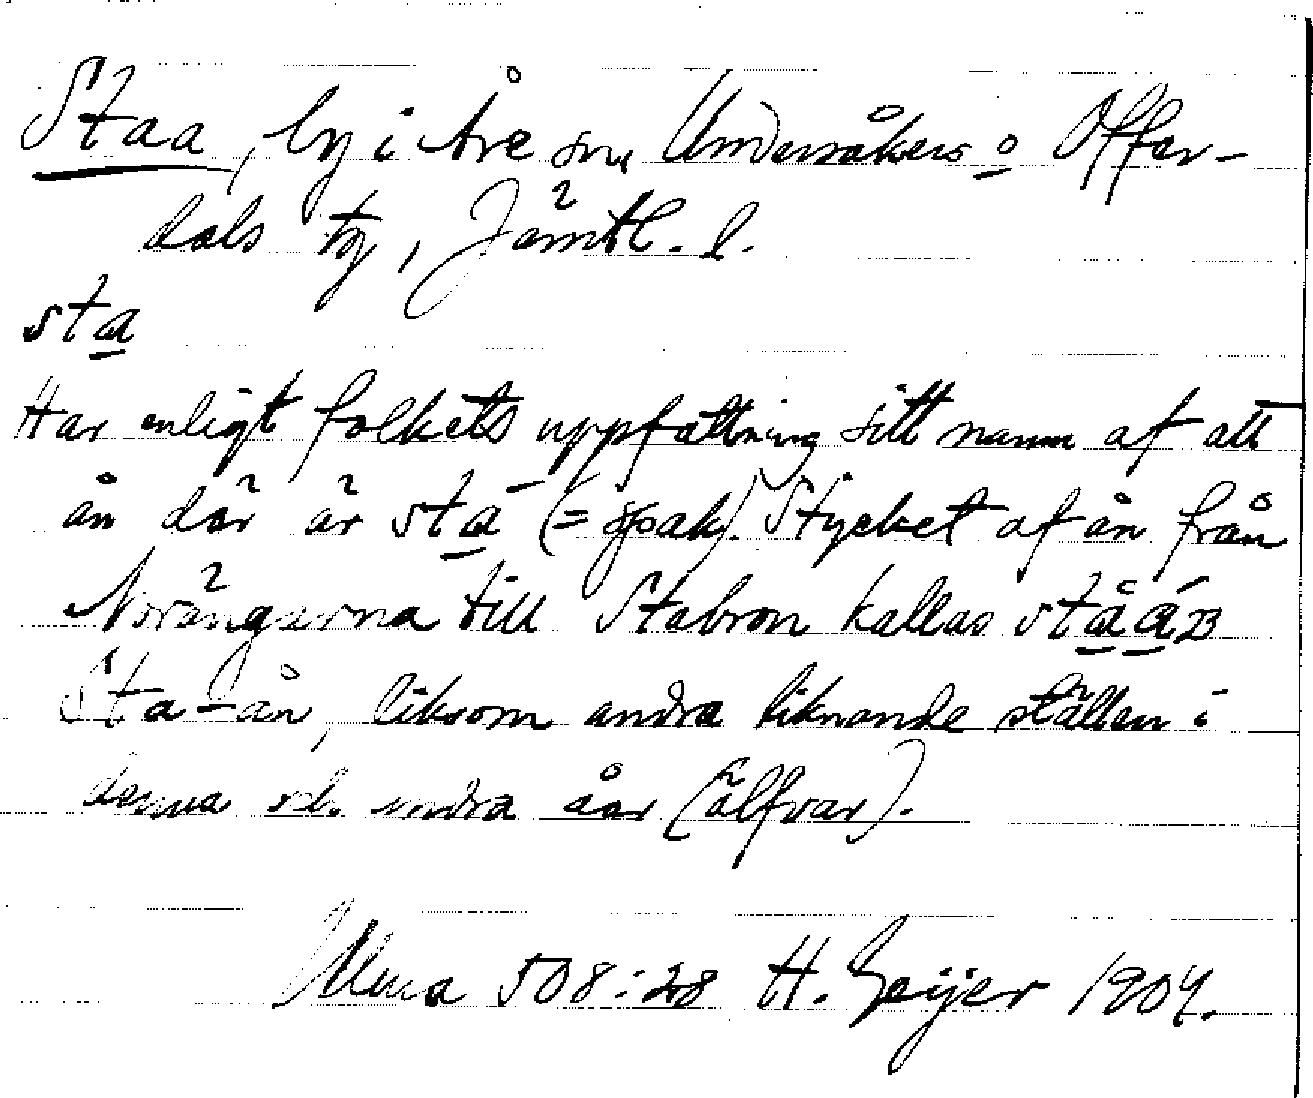 Staa, by i Åre sn, Undersåkers o Offer-
dals tg, Jämtl. l.
sta
Har enligt folkets uppfattning sitt namn af att
ån där är sta (= spak). Stycket af ån från
Norängarna till Stabron kallas ståán
Sta-ån, liksom andra liknande ställen i
denna och andra åar (älfvar).
Ulma 508:28 H. Geijer 1904.